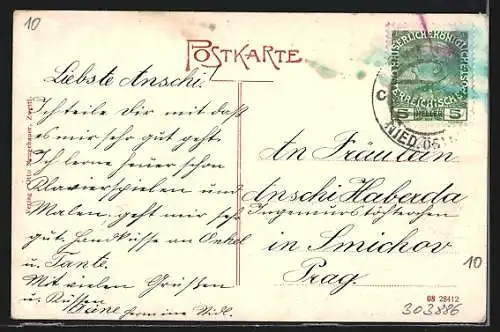 10
POSTKARTE
Liebste Anschi!
Ich teile Dir mit daß
es mir sehr gut geht.
Ich lerne heuer schon
Klavierspielen und
Malen. geht mir sehr
gut. Handküsse an Onkel
u. Tante.
Mit vielen Grüßen
u. Küssen
Deine Hermine
Verlag Otto Neugebauer, Zwettl.
5 HELLER 5
NIED.
An Fräulein
Anschi Haberda
Ingenieurstöchterchen
in Smichov
Prag.
10
08 28412
303886